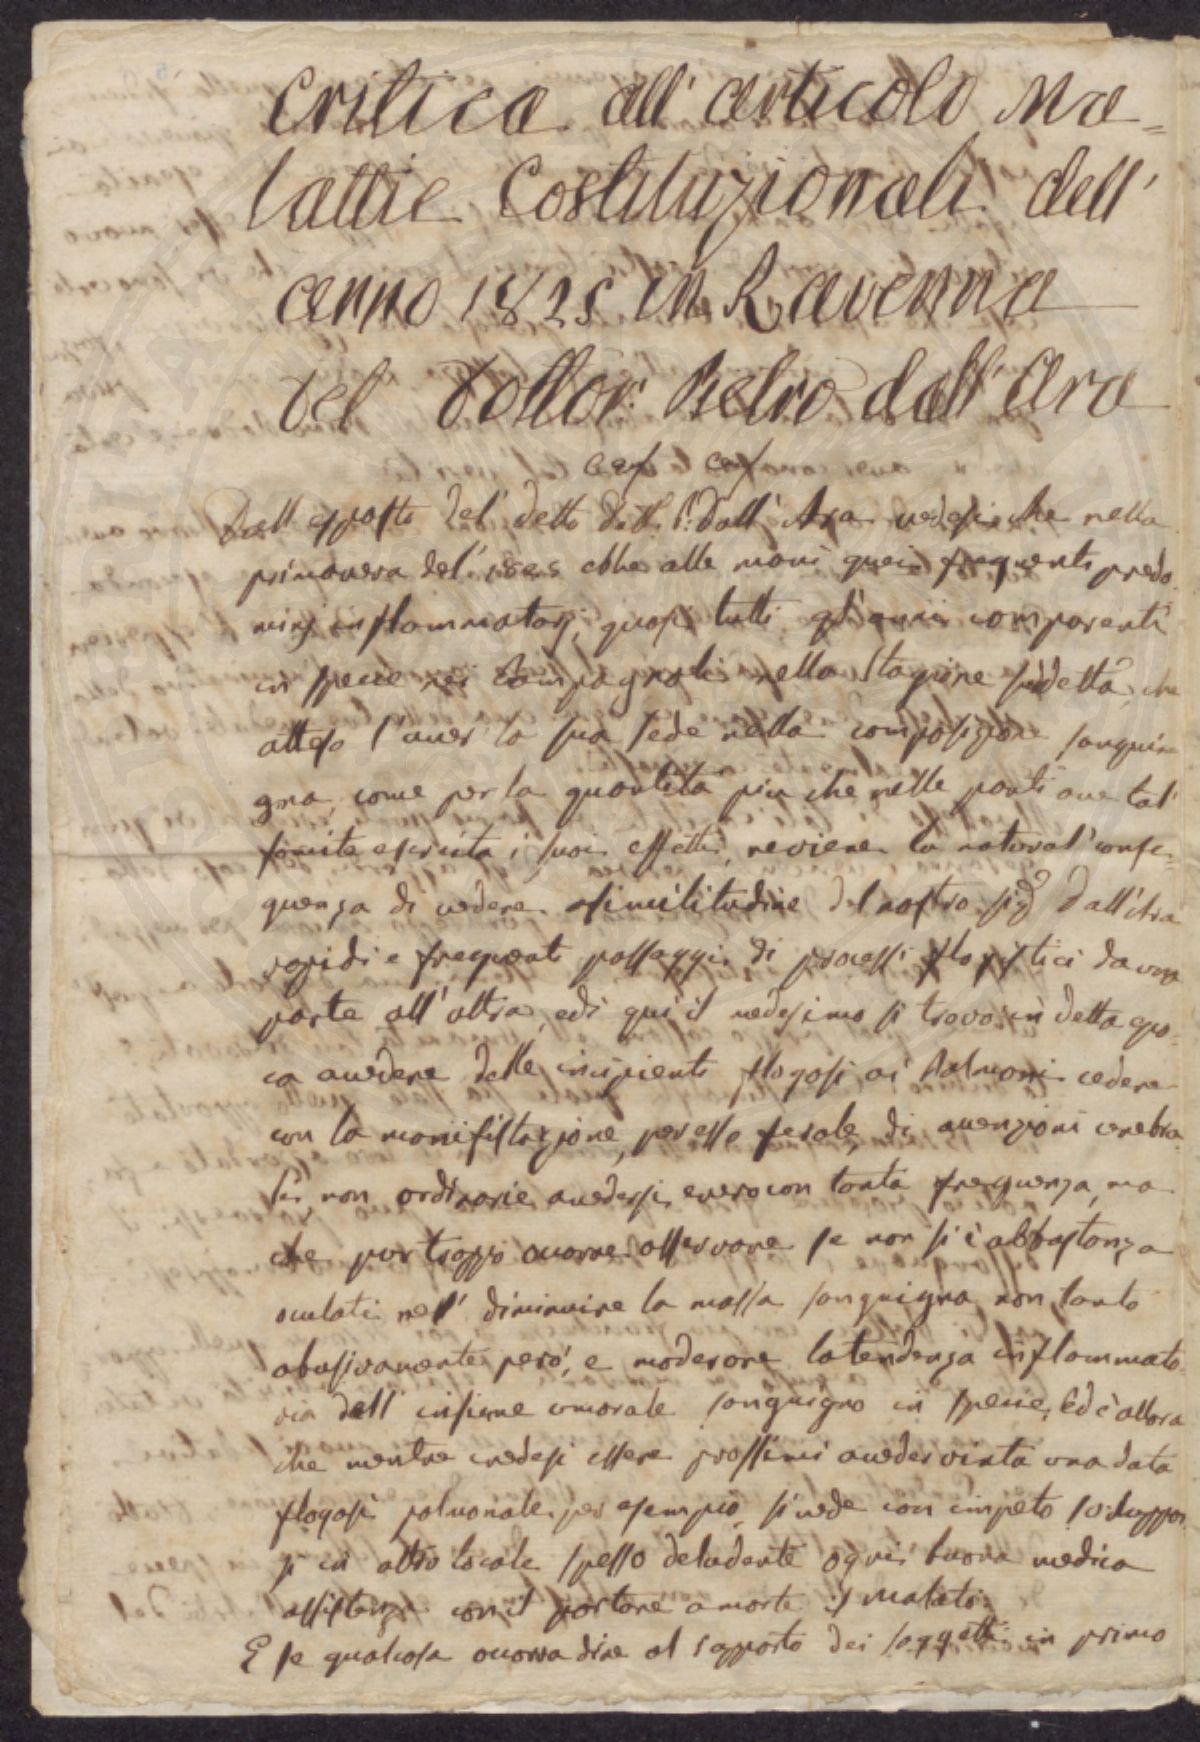 Critica all' articolo Ma=
lattie Costituzionali dell'
anno 1825 in Ravenna
del Dottor Pietro dall'Ara
Dall' esposto del detto Dott. P. Dall' Ara vedesi che nella
primavera del 1825 ebbe alle mani quei frequenti predo
minj inflammatorj, quasi tutti gl'anni comparenti
in specie nei Campagnoli nella stagione sudetta, che
atteso l'aver la sua sede nella composizione sangui
gna, come per la quantità più che nelle parti ove tal
fomite esercita i suoi effetti, ne viene la natural conse-
guenza di vedere similitudine del nostro Sig. Dall'Ara
rapidi e frequenti passaggi di processi flogistici da una
parte all' altra, e di qui il medesimo si trovo in detta epo-
ca a vedere delle incipienti flogosi ai Polmoni cedere
con la manifistazione, per esso ferale, di accenzioni cerebra
li, non ordinarie a vedersi, e vero con tanta frequenza, ma
che pur troppo occorre osservare se non si è abbastanza
oculati nell' diminuire la massa sanguigna, non tanto
abusivamente però, e moderare la tendenza inflammato
ria dell' insieme umorale sanguigno in specie; Ed è allora
che mentre credesi essere prossimi a veder vinta una data
flogosi polmonale per esempio, si vede con impeto sviluppar
si in altro locale spesso deludente ogni buona medica
assistenza con il portare a morte il malato.
E se qualcosa occorra dire al rapporto dei soggetti in primo